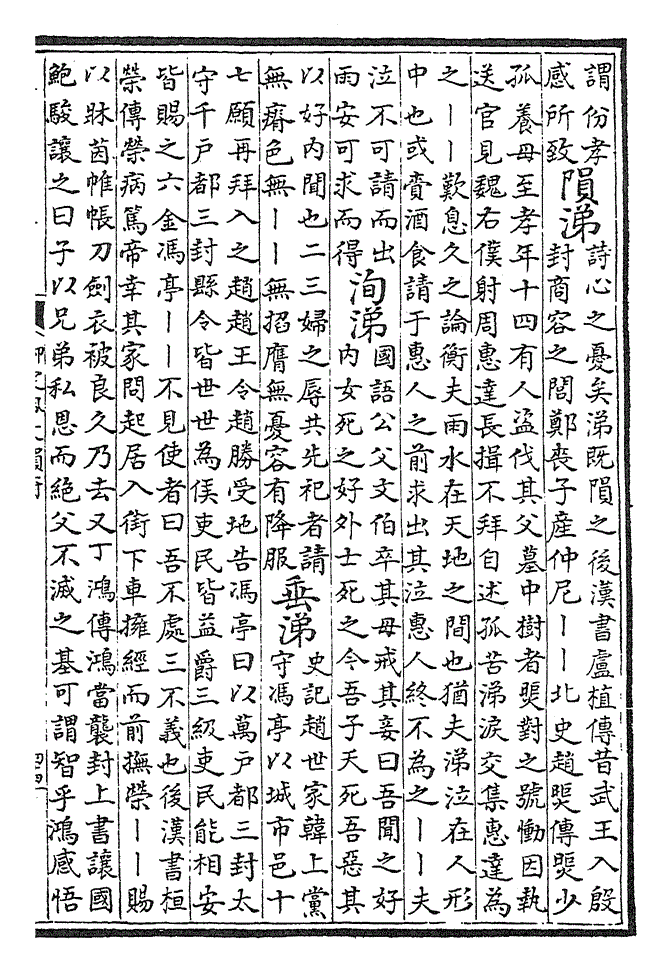 謂份孝
感所致
隕涕
詩心之憂矣涕既隕之後漢書盧植傳昔武王入殷
封商容之閭鄭喪子産仲尼丨丨北史趙煚傳煚少
孤養母至孝年十四有人盜伐其父墓中樹者煚對之號慟因執
送官見魏右僕射周惠達長揖不拜自述孤苦涕淚交集惠達為
之丨丨歎息久之論衡夫雨水在天地之間也猶夫涕泣在人形
中也或賫酒食請于惠人之前求出其泣惠人終不為之丨丨夫
泣不可請而出
雨安可求而得
洵涕
國語公父文伯卒其母戒其妾曰吾聞之好
内女死之好外士死之今吾子夭死吾惡其
以好内聞也二三婦之辱共先祀者請
無瘠色無丨丨無搯膺無憂容有降服
垂涕
史記趙世家韓上黨
守馮亭以城市邑十
七願再拜入之趙趙王令趙勝受地告馮亭曰以萬户都三封太
守千户都三封縣令皆世世為侯吏民皆益爵三級吏民能相安
皆賜之六金馮亭丨丨不見使者曰吾不處三不義也後漢書桓
榮傳榮病篤帝幸其家問起居入街下車擁經而前撫榮丨丨賜
以牀茵帷帳刀劒衣被良久乃去又丁鴻傳鴻當襲封上書讓國
鮑駿讓之曰子以兄弟私恩而絶父不滅之基可謂智乎鴻感悟